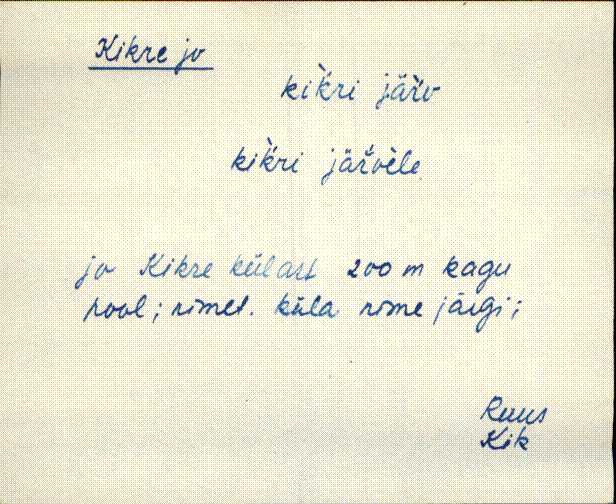 Kikre jv
kìkri järv
kìkri järvele
jv Kikre külast 200 m kagu
pool; nimet. küla nime järgi;
Ruus
Kik